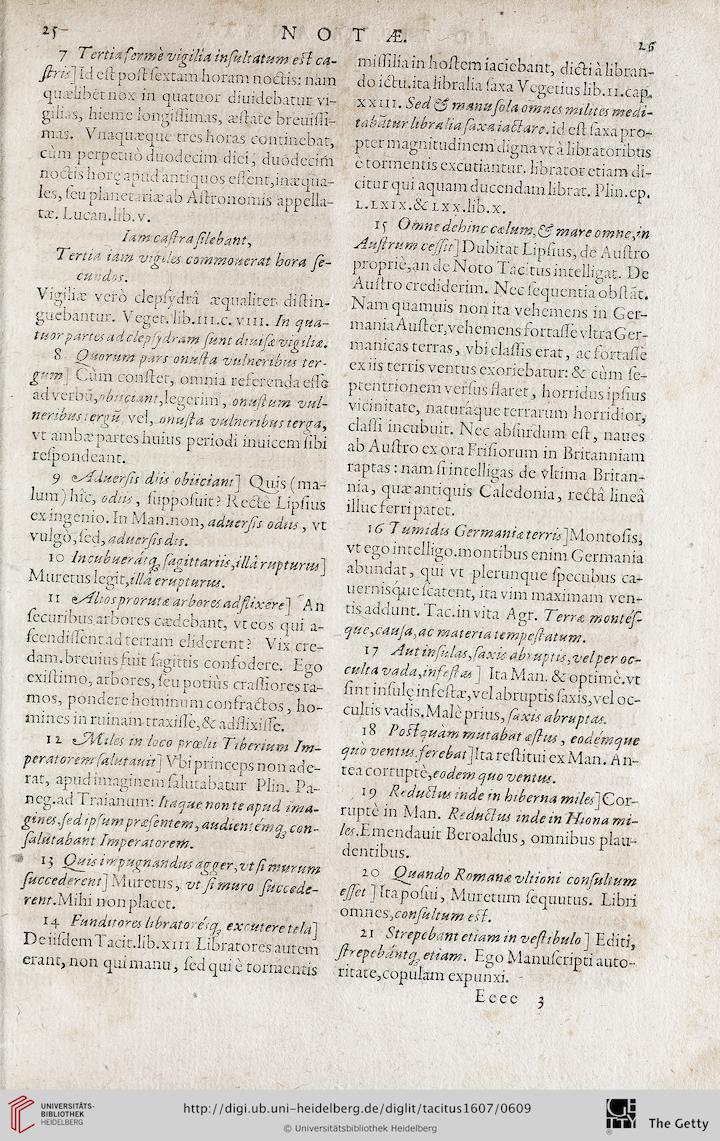 25
N O T Æ.
26
7 Tertia fermè vigilia insultatum est ca-
stris] Id est post sextam horam noctis: nam
quælibet nox in quatuor diuidebatur vi-
gilias, hieme longissimas, æstate breuissi-
mas. Vnaquæque tres horas continebat,
cùm perpetuò duodecim diei, duodecim
noctis horę apud antiquos essent, inæqua-
les, seu planetariæ ab Astronomis appella-
tæ. Lucan. lib. v.
Iam castra silebant,
Tertia iam vigiles commouerat hora se-
cundos.
Vigiliæ verò clepsydrâ æqualiter distin-
guebantur. Veget. lib. III. c. VIII. In qua-
tuor partes ad clepsydram sunt diuisæ vigiliæ.
8 Quorum pars onusta vulneribus ter-
gum] Cùm constet, omnia referenda esse
ad verbū, obiiciant, legerim, onustum vul-
neribus tergū, vel, onusta vulneribus terga,
vt ambæ partes huius periodi inuicem sibi
respondeant.
9 Aduersis diis obiiciant] Quis (ma-
lum) hîc, odiis, supposuit? Rectè Lipsius
ex ingenio. In Man. non, aduersis odiis, vt
vulgò, sed, aduersis dis.
10 Incubuerátq, sagittariis, illâ rupturus]
Muretus legit, illâ erupturus.
11 Altos prorutæ arbores adflixere] An
securibus arbores cædebant, vt eos qui a-
scendissent ad terram eliderent? Vix cre-
dam. breuius fuit sagittis confodere. Ego
existimo, arbores, seu potiùs crassiores ra-
mos, pondere hominum confractos, ho-
mines in ruinam traxisse, & adflixisse.
12 Miles in loco prœlii Tiberium Im-
peratorem salutauit] Vbi princeps non ade-
rat, apud imaginem salutabatur Plin. Pa-
neg. ad Traianum: Itaque non te apud ima-
gines, sed ipsum præsentem, audientémq, con-
salutabant Imperatorem.
13 Quis impugnandus agger, vt si murum
succederent] Muretus, vt si muro succede-
rent. Mihi non placet.
14 Funditores libratorésq, excutere tela]
De iisdem Tacit. lib. XIII Libratores autem
erant, non qui manu, sed qui è tormentis
missilia in hostem iaciebant, dicti à libran-
do ictu. ita libralia saxa Vegetius lib. II. cap.
XXIII. Sed & manu sola omnes milites medi-
tabātur libralia saxa iactare. id est saxa pro-
pter magnitudinem digna vt à libratoribus
è tormentis excutiantur. librator etiam di-
citur qui aquam ducendam librat. Plin. ep.
L. LXIX. & LXX. lib. X.
15 Omne dehinc cælum, & mare omne, in
Austrum cessit] Dubitat Lipsius, de Austro
propriè, an de Noto Tacitus intelligat. De
Austro crediderim. Nec sequentia obstāt.
Nam quamuis non ita vehemens in Ger-
mania Auster, vehemens fortasse vltra Ger-
manicas terras, vbi classis erat, ac fortasse
ex iis terris ventus exoriebatur: & cùm se-
ptentrionem versus flaret, horridus ipsius
vicinitate, naturáque terrarum horridior,
classi incubuit. Nec absurdum est, naues
ab Austro ex ora Frisiorum in Britanniam
raptas: nam si intelligas de vltima Britan-
nia, quæ antiquis Caledonia, rectâ lineâ
illuc ferri patet.
16 Tumidis Germaniæ terris] Montosis,
vt ego intelligo. montibus enim Germania
abundat, qui vt plerunque specubus ca-
uernisque scatent, ita vim maximam ven-
tis addunt. Tac. in vita Agr. Terræ montés-
que, causa, ac materia tempestatum.
17 Aut insulas, saxis abruptis, vel per oc-
culta vada, infestas] Ita Man. & optimè. vt
sint insulę infestæ, vel abruptis saxis, vel oc-
cultis vadis. Malè prius, saxis abruptas.
18 Postquàm mutabat æstus, eodémque
quò ventus ferebat] Ita restitui ex Man. An-
tea corruptè, eodem quo ventus.
19 Reductus inde in hiberna miles] Cor-
ruptè in Man. Reductus inde in Hiona mi-
les. Emendauit Beroaldus, omnibus plau-
dentibus.
20 Quando Romanæ vltioni consultum
esset] Ita posui, Muretum sequutus. Libri
omnes, consultum est.
21 Strepebant etiam in vestibulo] Editi,
strepebántq, etiam. Ego Manuscripti auto-
ritate, copulam expunxi.
Eeee 3
UNIVERSITÄTS-
BIBLIOTHEK
HEIDELBERG
http://digi.ub.uni-heidelberg.de/diglit/tacitus1607/0609
© Universitätsbibliothek Heidelberg
The Getty